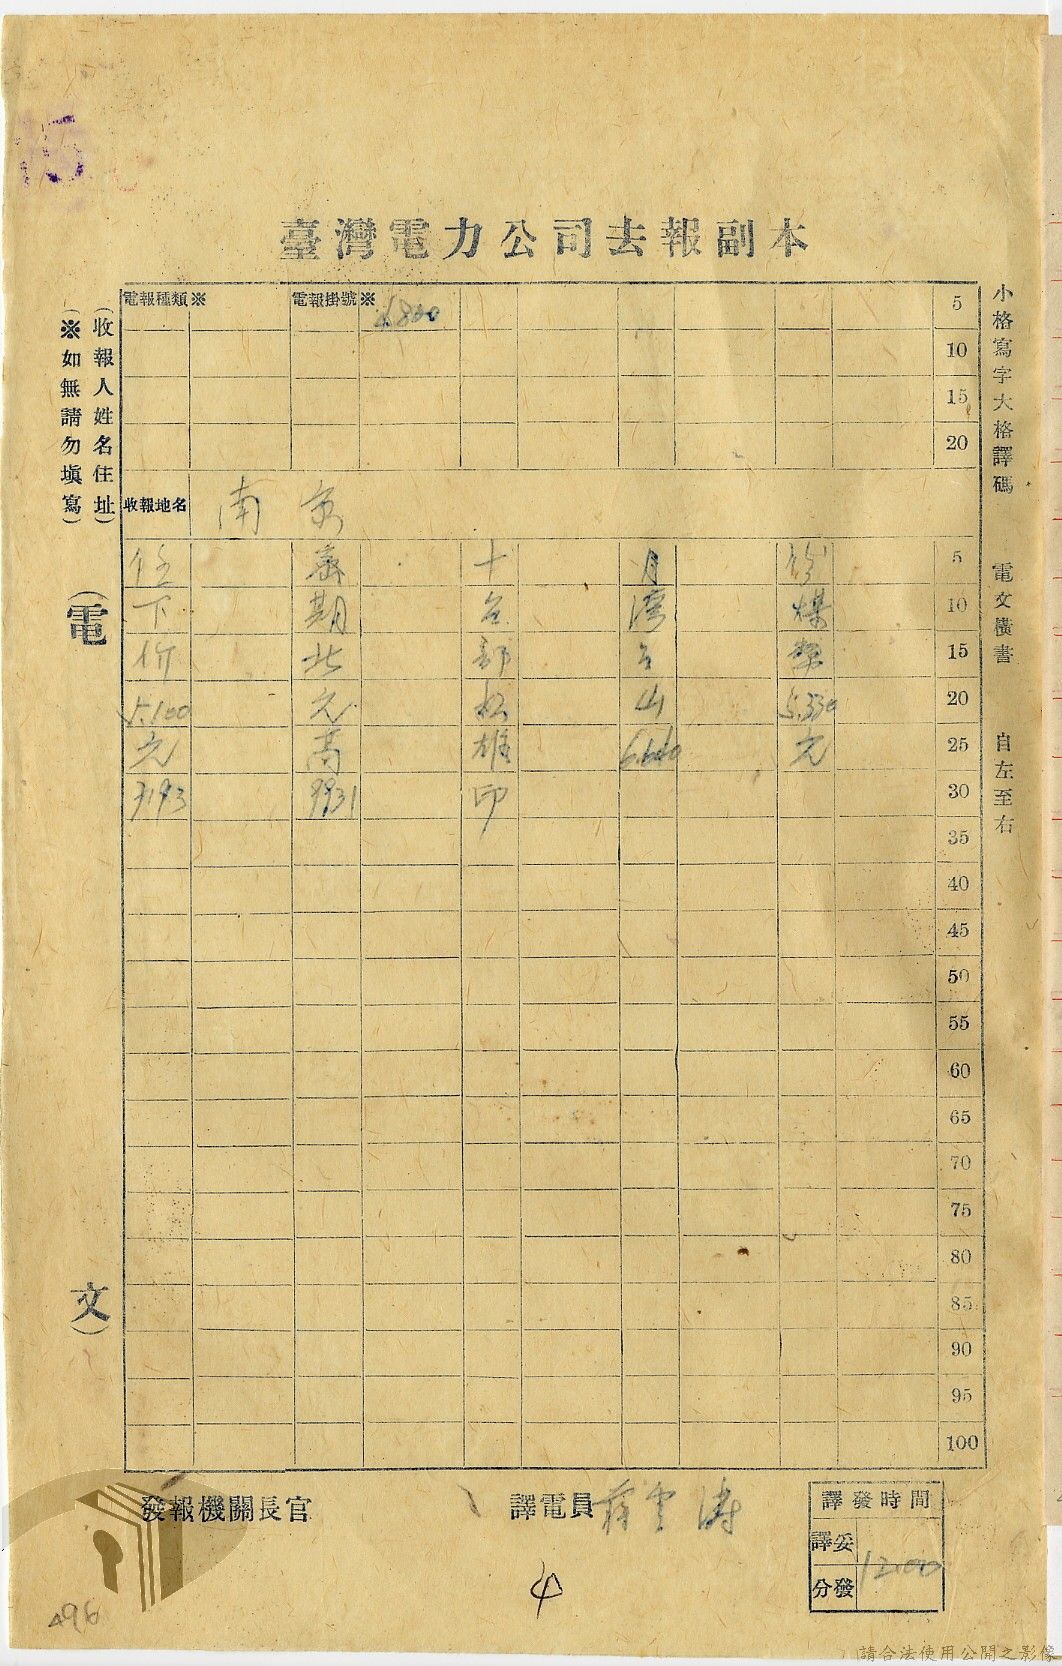 臺灣電力公司去報副本
電報種類※ 電報掛號※ 5
10
15
20
收報地名 南京
密 十 月 份 5
下 期 台 灣 煤 10
价 北 部 台 15
5.100 元 松 山 5.330 20
元 高 雄 6.660 元 25
9931 印 30
35
40
45
50
55
60
65
70
75
80
85
90
95
100
（收報人姓名住址）
（※如無請勿填寫）
（電
文）
小格寫字大格譯碼 電文橫書 自左至右
發報機關長官 譯電員 蔣雲濤
譯發時間
譯妥
分發
12.00
4
496
請合法使用公開之影像